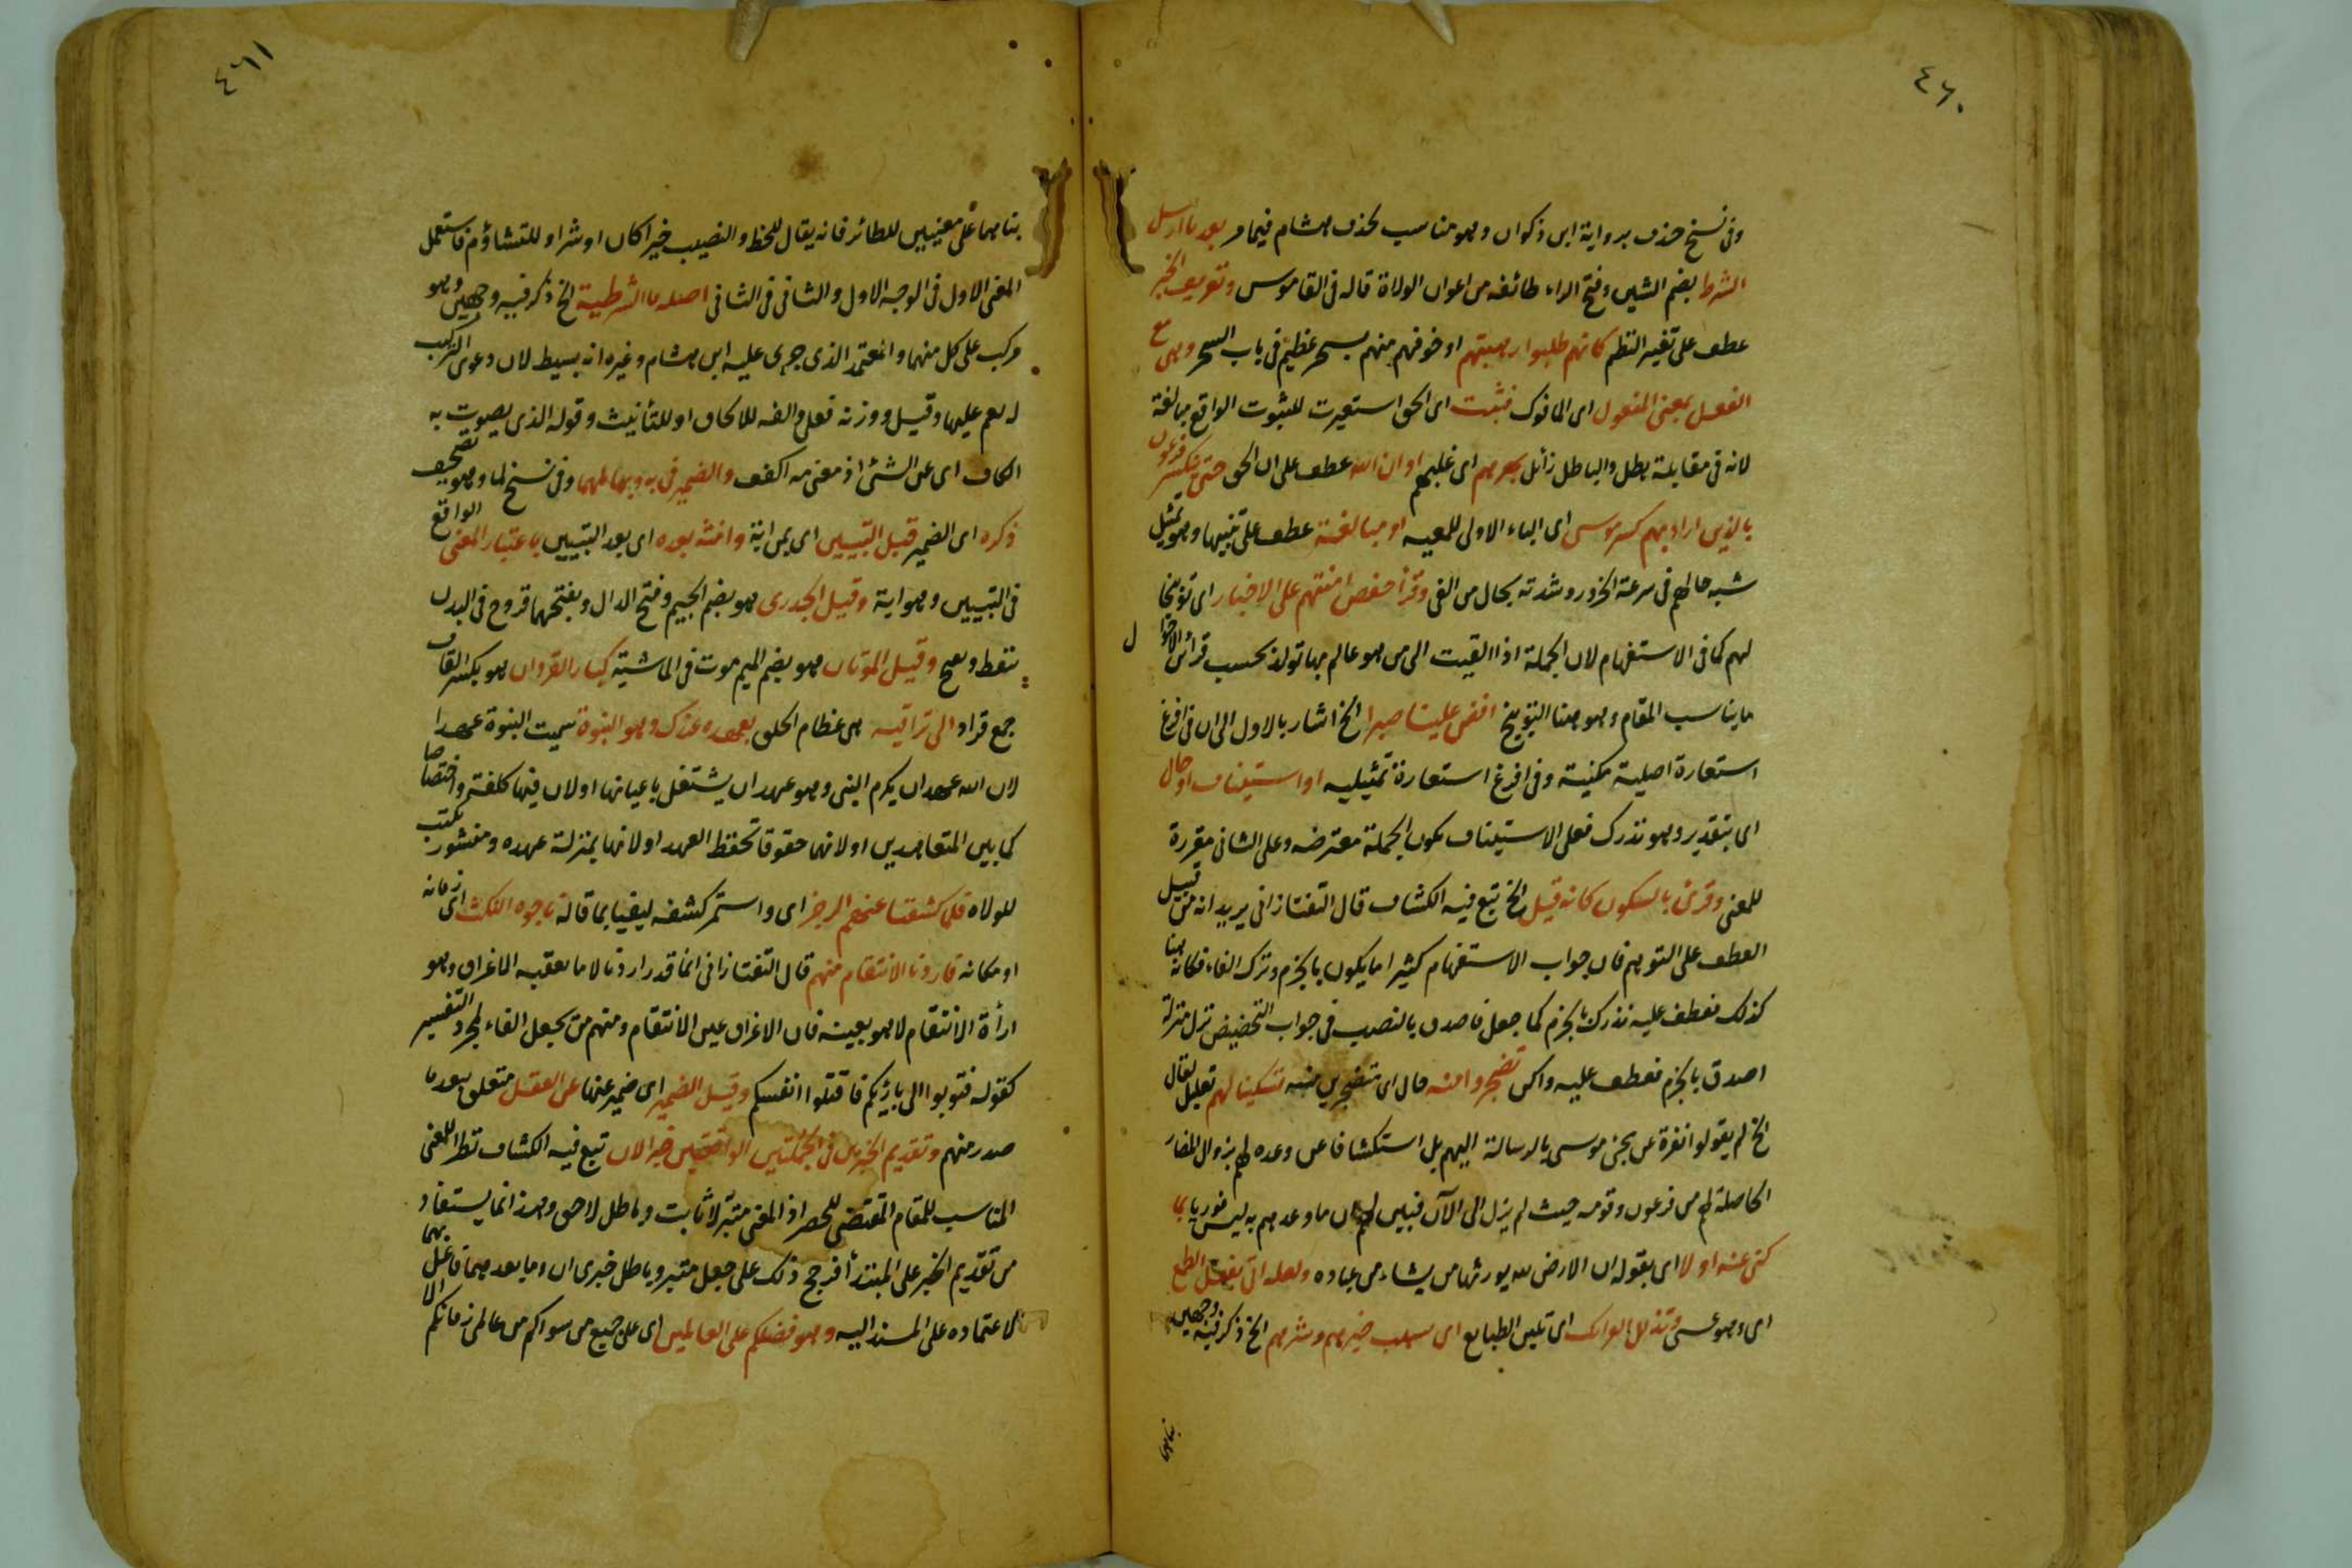 ٤٦٠
وفى نسخ حذف برواية ابن ذكوان وهو مناسب لحذف هشام فيما مر بعد ما ارسل
الشرط بضم الشين وفتح الراء طائفه من اعوان الولاة قاله فى القاموس وتعريف الخبر
عطف على تغيير النظم كانهم طلبوا رهبتهم او خوفهم منهم بسحر عظيم فى باب السحر وهى مع
الفعل بمعنى المفعول اى المافوك فثبت اى الحق استعيرت للثبوت الواقع مبالغة
لانه فى مقابلة بطل والباطل زائل بهرهم اى غلبهم او ان الله عطف على ان الحق حتى ينكسر فرعون
بالذين اراد بهم كسر موسى اى الباء الاولى للمعيه او مبالغة عطف على تنبيها وهو تمثيل
شبه حالهم فى سرعة الخرور وشدته بحال من القى وقرأ حفص امنتم على الاخبار اى توبيخا
لهم كما فى الاستفهام لان الجملة اذا القيت الى من هو عالم بها تولد بحسب قرائن الاحوال
ما يناسب المقام وهو هنا التوبيخ افض علينا صبرا الخ اشار بالاول الى ان فى افرغ
استعارة اصلية مكنية وفى افرغ استعارة تمثيليه او استيناف او حال
اى بتقدير وهو نذرك فعلى الاستيناف تكون الجملة معترضه وعلى الثانى مقررة
للمعنى وقرئ بالسكون كانه قيل الخ تبع فيه الكشاف قال التفتازانى يريد انه من قبيل
العطف على التوهم فان جواب الاستفهام كثيرا ما يكون بالجزم وترك الفاء فكانه هنا
كذلك فعطف عليه نذرك بالجزم كما جعل فاصدق بالنصب فى جواب التحضيض نزل منزلة
اصدق بالجزم فعطف عليه واكن تضجروا منه حال اى متضجرين منه تسكينا لهم تعليل لقال
الخ لم يقولوا نفرة عن مجئ موسى بالرسالة اليهم بل استكشافا عن وعده لهم بزوال المضار
الحاصلة لهم من فرعون وقومه حيث لم يزل الى الآن فبين لهم ان ما وعدهم به ليس فوريا بما
كنى عنه اولا اى بقوله ان الارض لله يورثها من يشاء من عباده ولعله اتى بفعل الطمع
اى وهو عسى وتذلل العرائك اى تلين الطبايع اى سبب خيرهم وشرهم الخ ذكر فيه وجهين
بناهما
٤٦١
بناهما على معنيين للطائر فانه يقال للحظ والنصيب خيرا كان او شرا وللتشاؤم فاستعمل
المعنى الاول فى الوجه الاول والثانى فى الثانى اصله ما الشرطية الخ ذكر فيه وجهين وهو
مركب على كل منهما والمعتمد الذى جرى عليه ابن هشام وغيره انه بسيط لان دعوى التركيب
لم يقم عليها وقيل ووزنه فعلى والفه للالحاق او للتأنيث وقوله الذى يصوت به
الكاف اى عن الشئ اذ معنى مه اكفف والضمير فى به وبها لمهما وفى نسخ لما وهو تصحيف
ذكره اى الضمير قبل التبيين اى بمن اية وانثه بعده اى بعد التبيين باعتبار المعنى الواقع
فى التبيين وهو اية وقيل الجدرى هو بضم الجيم وفتح الدال وبفتحهما قروح فى البدن
تنفط وتقيح وقيل الموتان هو بضم الميم موت فى الماشية كبار القردان هو بكسر القاف
جمع قراد الى تراقيه هى عظام الحلق بعهده عندك وهو النبوة سميت النبوة عهدا
لان الله عهد ان يكرم النبى وهو عهد ان يشتغل باعبائها او لان فيها كلفة واختصاصا
كما بين المتعاهدين او لانها حقوقا تحفظ العهد او لانها بمنزلة عهده ومنشور يكتب
للولاه فلما كشفنا عنهم الرجز اى واستمر كشفه ليفيا بما قاله فاجؤه النكث اى زمانه
او مكانه فاردنا الانتقام منهم قال التفتازانى انما قدر اردنا لان ما يعقبه الاغراق وهو
ارأة الانتقام لا هو بعينه فان الاغراق عين الانتقام ومنهم من يجعل الفاء لمجرد التفسير
كقوله فتوبوا الى بارئكم فاقتلوا انفسكم وقيل الضمير اى ضمير عنها عن العقل متعلق ببعد ما
صدر منهم وتقديم الخبرين فى الجملتين الواقعتين خبر الان تبع فيه الكشاف نظرا للمعنى
المناسب للمقام المقتضى للحصر اذ المعنى متبر لا ثابت وباطل لا حق وهذا انما يستفاد
من تقديم الخبر على المبتدأ فرجح ذلك على جعل متبر وباطل خبرى ان وما بعدهما فاعل بهما
لاعتماده على المسند اليه وهو فضلكم على العالمين اى على جميع من سواكم من عالمى زمانكم الا